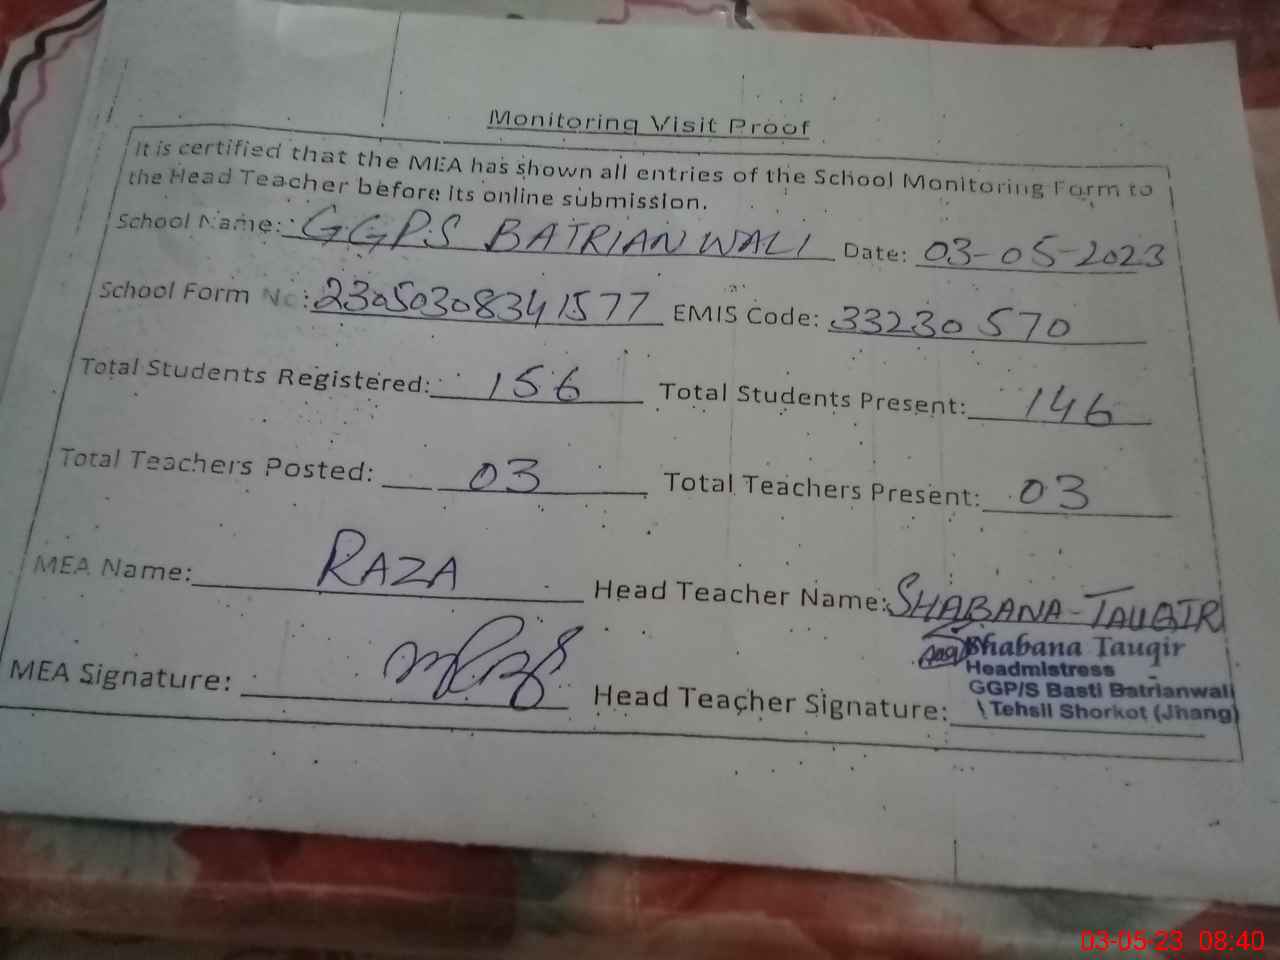 Monitoring Visit Proof
It is certified that the MEA has shown all entries of the School Monitoring Form to
the Head Teacher before its online submission.
School Name: GGPS BATRIANWALI Date: 03-05-2023
School Form No: 23050308341577 EMIS Code: 33230570
Total Students Registered: 156 Total Students Present: 146
Total Teachers Posted: 03 Total Teachers Present: 03
MEA Name: RAZA Head Teacher Name: SHABANA-TAUQIR
Shabana Tauqir
Headmistress
MEA Signature: Head Teacher Signature:
GGP/S Basti Batrianwali
Tehsil Shorkot (Jhang)
03-05-23 08:40